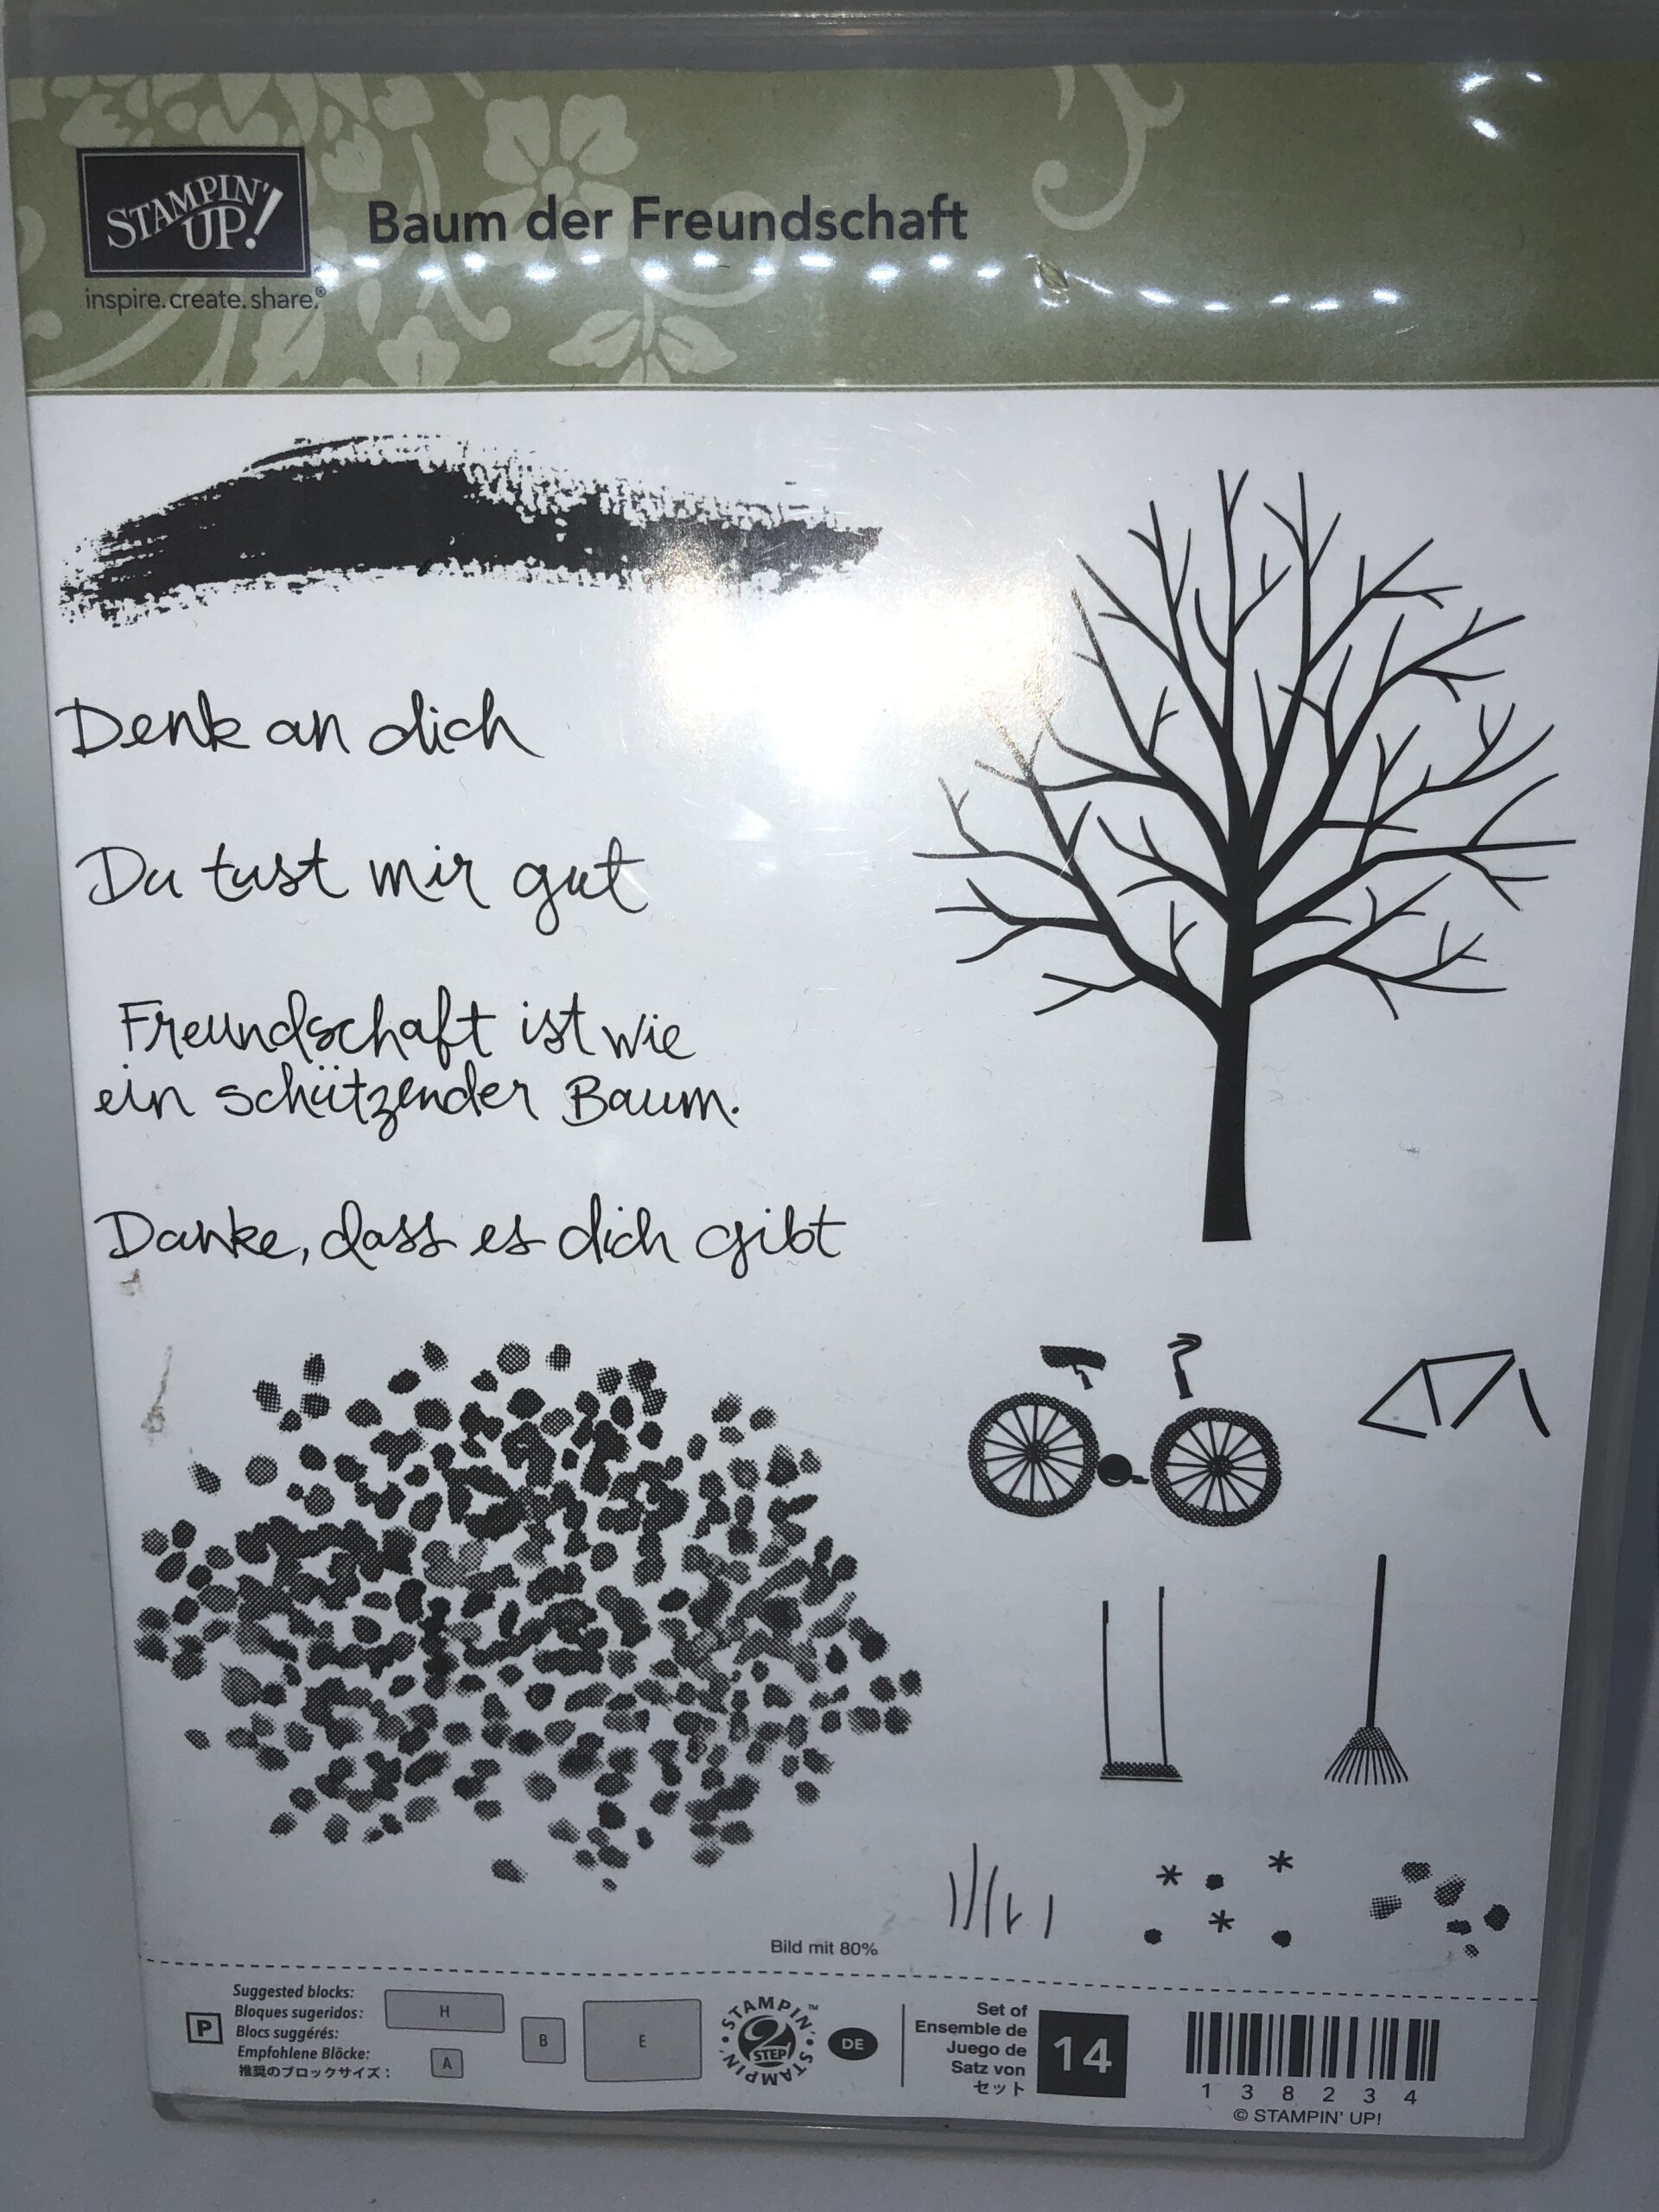 STAMPIN' UP!
inspire.create.share.®
Baum der Freundschaft
Denk an dich
Du tust mir gut
Freundschaft ist wie
ein schützender Baum.
Danke, dass es dich gibt
Bild mit 80%
P
Suggested blocks:
Bloques sugeridos:
Blocs suggérés:
Empfohlene Blöcke:
推奨のブロックサイズ：
H
A
B
E
STAMPIN'™
2 STEP
STAMPIN'
DE
Set of
Ensemble de
Juego de
Satz von
セット
14
138234
© STAMPIN' UP!